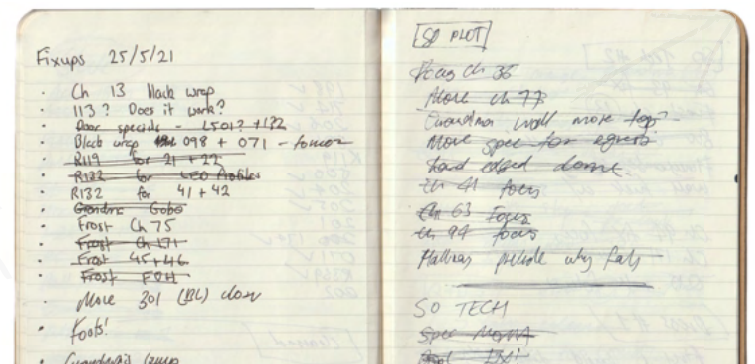 Fixups 25/5/21
· Ch 13 black wrap
· 113? Does it work?
· Door specials - L501? + 132
· Black wrap 098 + 071 -
· R119 for 21 + 22
· R132 for LED Profiles
· R132 for 41 + 42
· Grandma Gobo
· Frost Ch 75
· Frost Ch 171
· Frost 45 + 46
· Frost FOH
· Move 301 (BL) down
· Foots!
SO PLOT
Focus ch 36
Move ch 77
Grandma wall more top -
Move spec for egress
hard edged dome
Ch 41 focus
Ch 63 Focus
Ch 94 focus
why
SO TECH
Spec